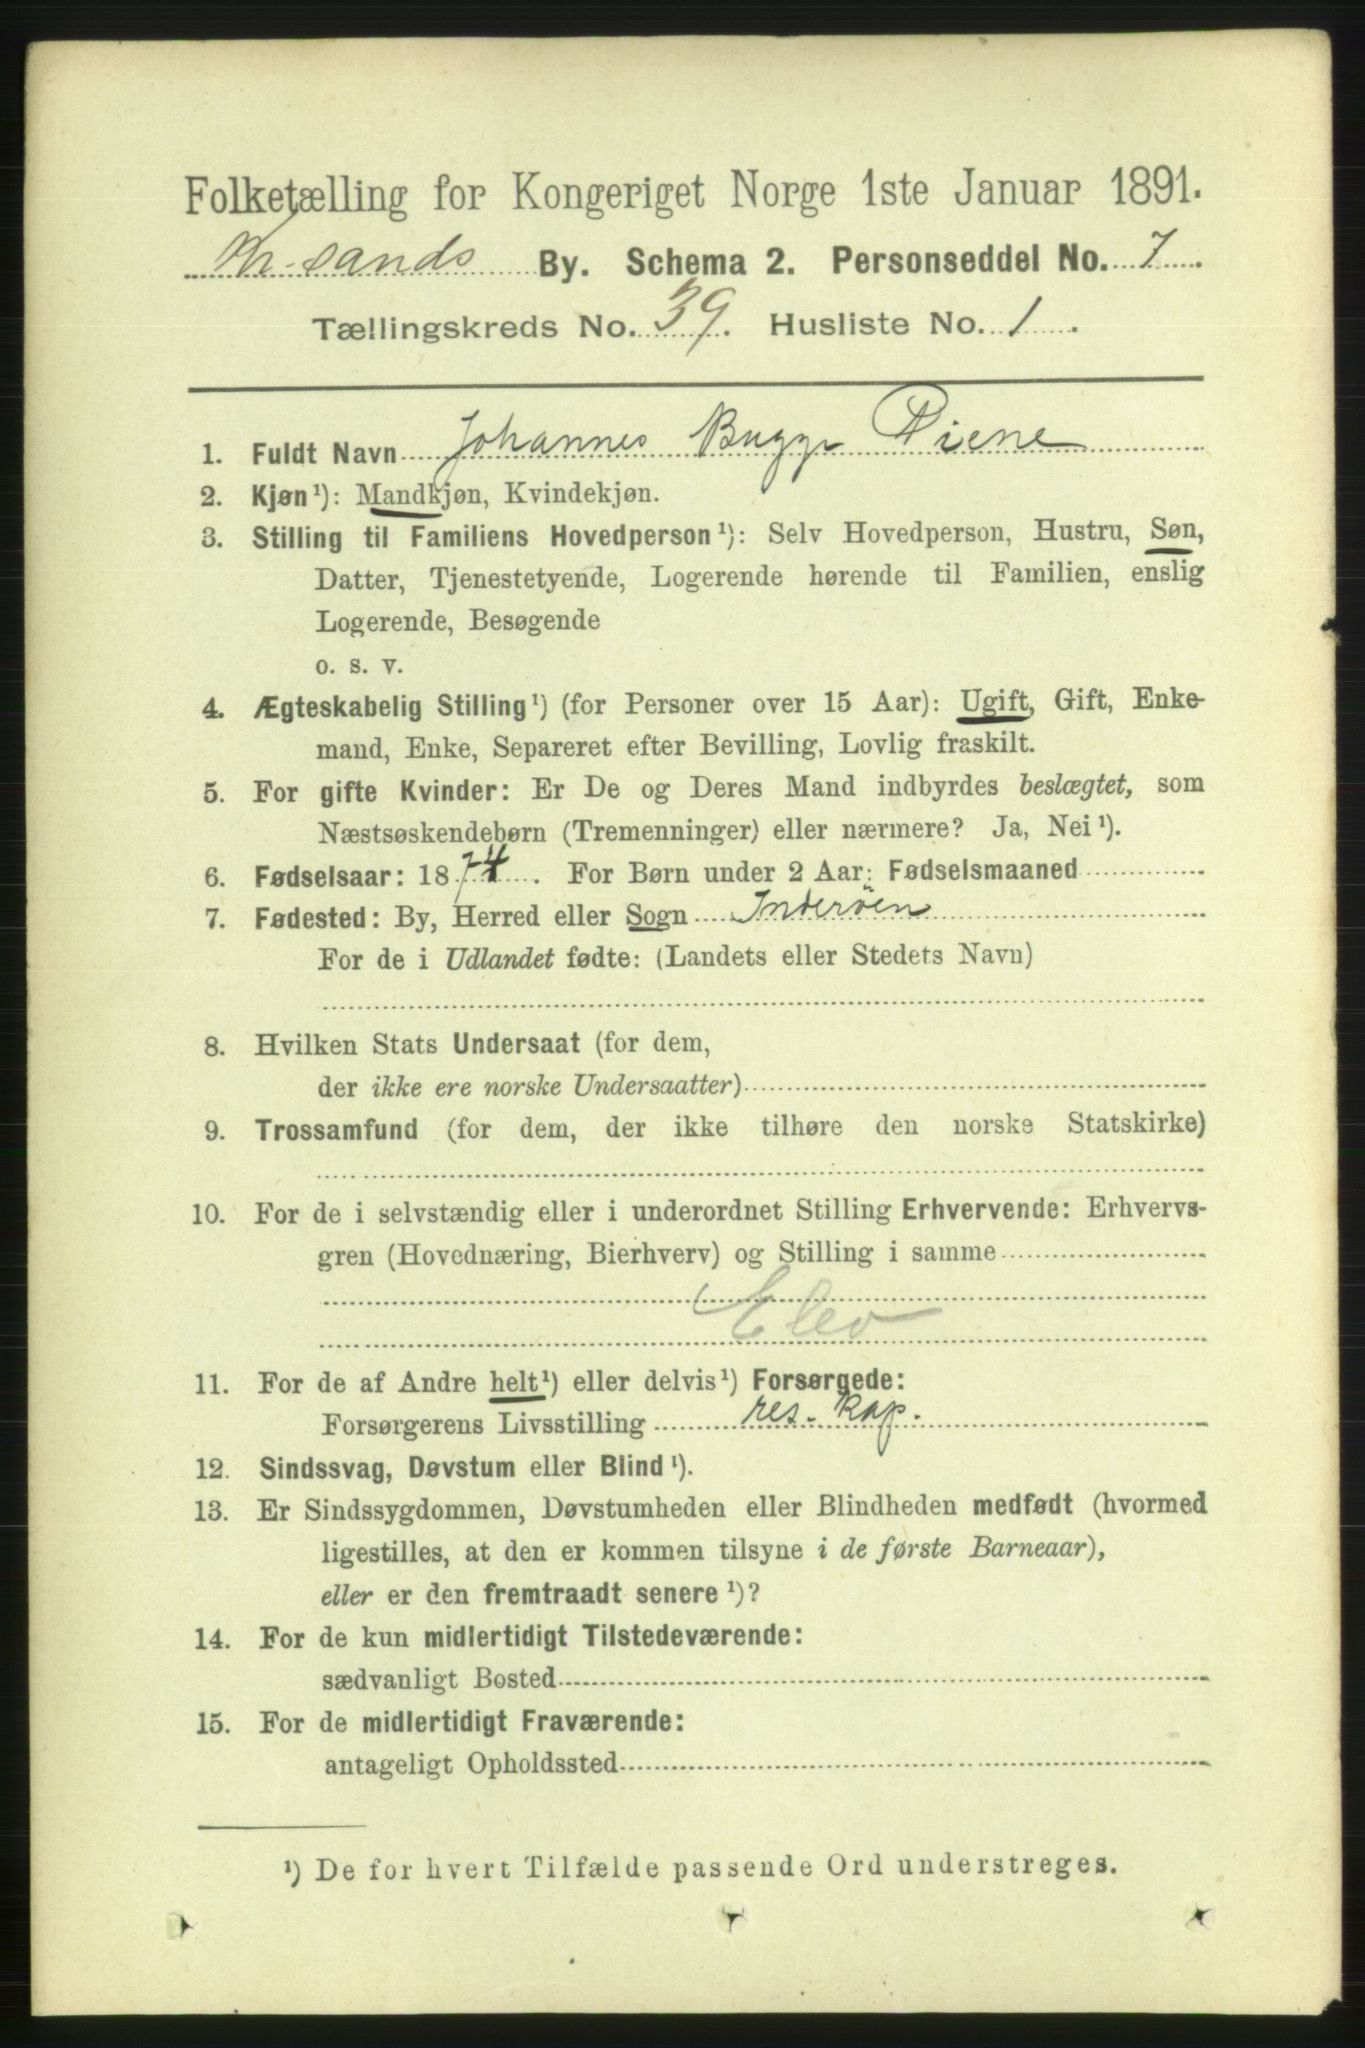 Folketælling for Kongeriget Norge 1ste Januar 1891.
Kr.sands By. Schema 2. Personseddel No. 7.
Tællingskreds No. 39. Husliste No. 1.
1. Fuldt Navn Johannes Bugge Piene
2. Kjøn¹): Mandkjøn, Kvindekjøn.
3. Stilling til Familiens Hovedperson¹): Selv Hovedperson, Hustru, Søn,
Datter, Tjenestetyende, Logerende hørende til Familien, enslig
Logerende, Besøgende
o. s. v.
4. Ægteskabelig Stilling¹) (for Personer over 15 Aar): Ugift, Gift, Enke-
mand, Enke, Separeret efter Bevilling, Lovlig fraskilt.
5. For gifte Kvinder: Er De og Deres Mand indbyrdes beslægtet, som
Næstsøskendebørn (Tremenninger) eller nærmere? Ja, Nei¹).
6. Fødselsaar: 1874. For Børn under 2 Aar: Fødselsmaaned
7. Fødested: By, Herred eller Sogn Inderöen
For de i Udlandet fødte: (Landets eller Stedets Navn)
8. Hvilken Stats Undersaat (for dem,
der ikke ere norske Undersaatter)
9. Trossamfund (for dem, der ikke tilhøre den norske Statskirke)
10. For de i selvstændig eller i underordnet Stilling Erhvervende: Erhvervs-
gren (Hovednæring, Bierhverv) og Stilling i samme
Elev
11. For de af Andre helt¹) eller delvis¹) Forsørgede:
Forsørgerens Livsstilling res. Kap.
12. Sindssvag, Døvstum eller Blind¹).
13. Er Sindssygdommen, Døvstumheden eller Blindheden medfødt (hvormed
ligestilles, at den er kommen tilsyne i de første Barneaar),
eller er den fremtraadt senere¹)?
14. For de kun midlertidigt Tilstedeværende:
sædvanligt Bosted
15. For de midlertidigt Fraværende:
antageligt Opholdssted
¹) De for hvert Tilfælde passende Ord understreges.